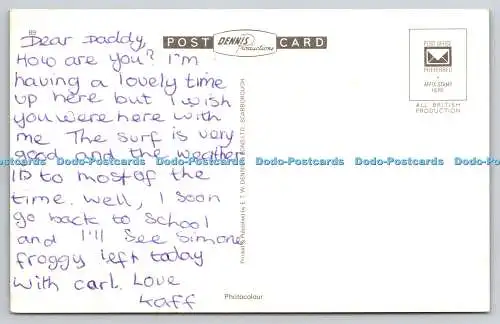 89
Dear Daddy,
How are you? I'm
having a lovely time
up here but I wish
you were here with
me. The surf is very
good and the weather
is to most of the
time. Well, I soon
go back to school
and I'll see Simone
froggy left today
with carl. Love
Kaff
POST DENNIS Productions CARD
POST OFFICE
PREFERRED
AFFIX STAMP
HERE
ALL BRITISH
PRODUCTION
Printed & Published by E. T. W. DENNIS & SONS LTD. SCARBOROUGH
Dodo-Postcards Dodo-Postcards Dodo-Postcards Dodo-Postcards Dodo-Postcards
Photocolour